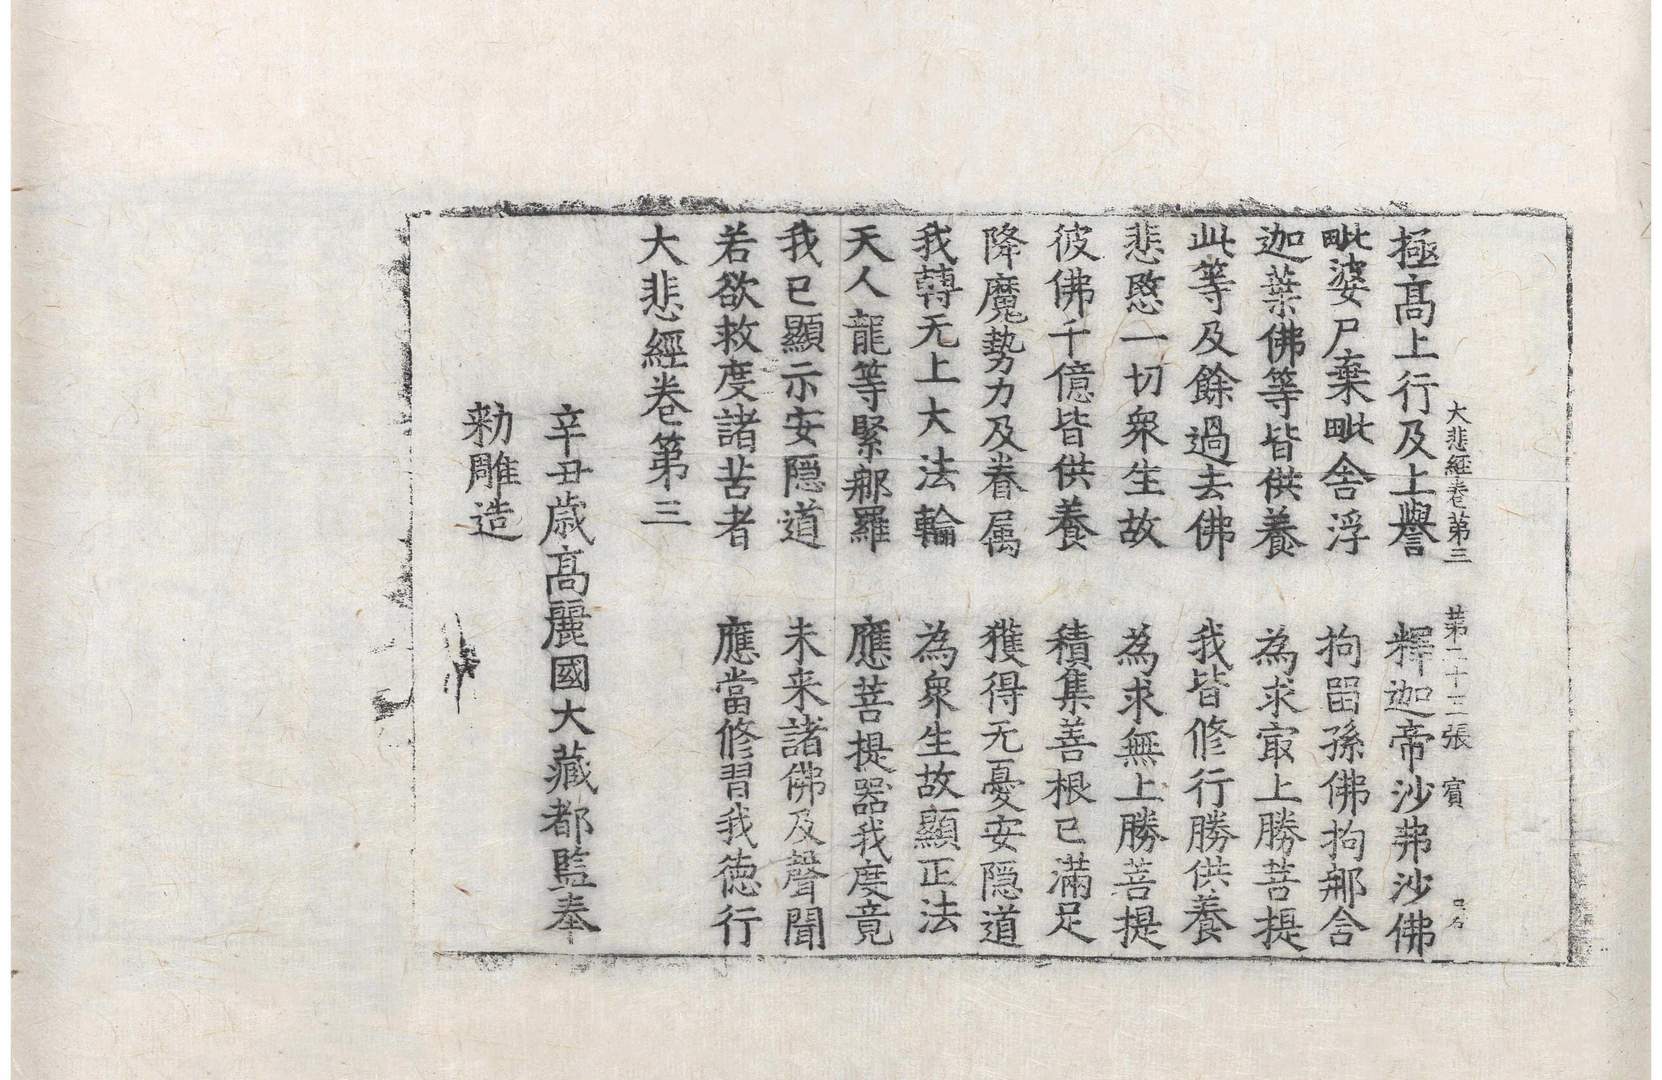 大悲經卷第三 第二十三張 賓
極高上行及上譽 釋迦帝沙弗沙佛
毗婆尸棄毗舍浮 拘留孫佛拘那舍
迦葉佛等皆供養 為求冣上勝菩提
此等及餘過去佛 我皆修行勝供養
悲愍一切衆生故 為求無上勝菩提
彼佛千億皆供養 積集善根已滿足
降魔勢力及眷属 獲得无憂安隠道
我轉无上大法輪 為衆生故顯正法
天人龍等緊那羅 應菩提器我度竟
我已顯示安隠道 未来諸佛及聲聞
若欲救度諸苦者 應當修習我徳行
大悲經卷第三
辛丑歳高麗國大藏都監奉
勑雕造